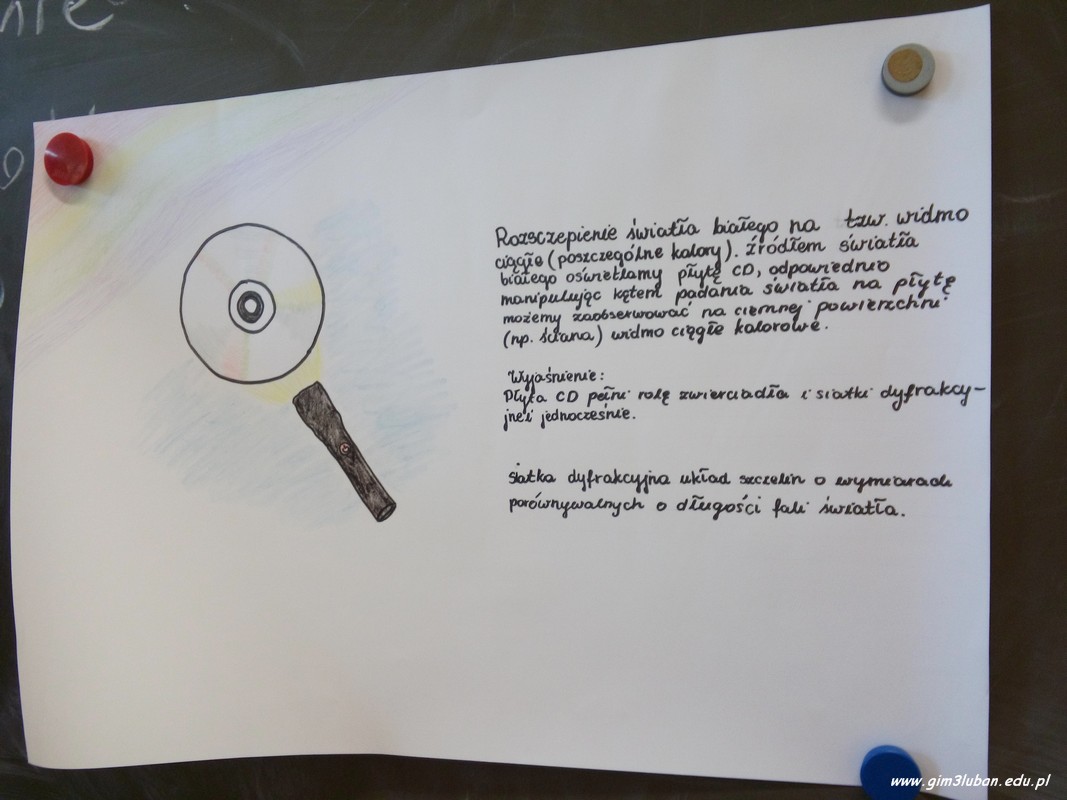 nie
Rozsczepienie światła białego na tzw. widmo
ciągłe (poszczególne kolory). źródłem światła
białego oświetlamy płytę CD, odpowiednio
manipulując kątem padania światła na płytę
możemy zaobserwować na ciemnej powierzchni
(np. ściana) widmo ciągłe kolorowe.
Wyjaśnienie:
Płyta CD pełni rolę zwierciadła i siatki dyfrakcy-
jnej jednocześnie.
siatka dyfrakcyjna układ szczelin o wymiarach
porównywalnych o długości fali światła.
www.gim3luban.edu.pl